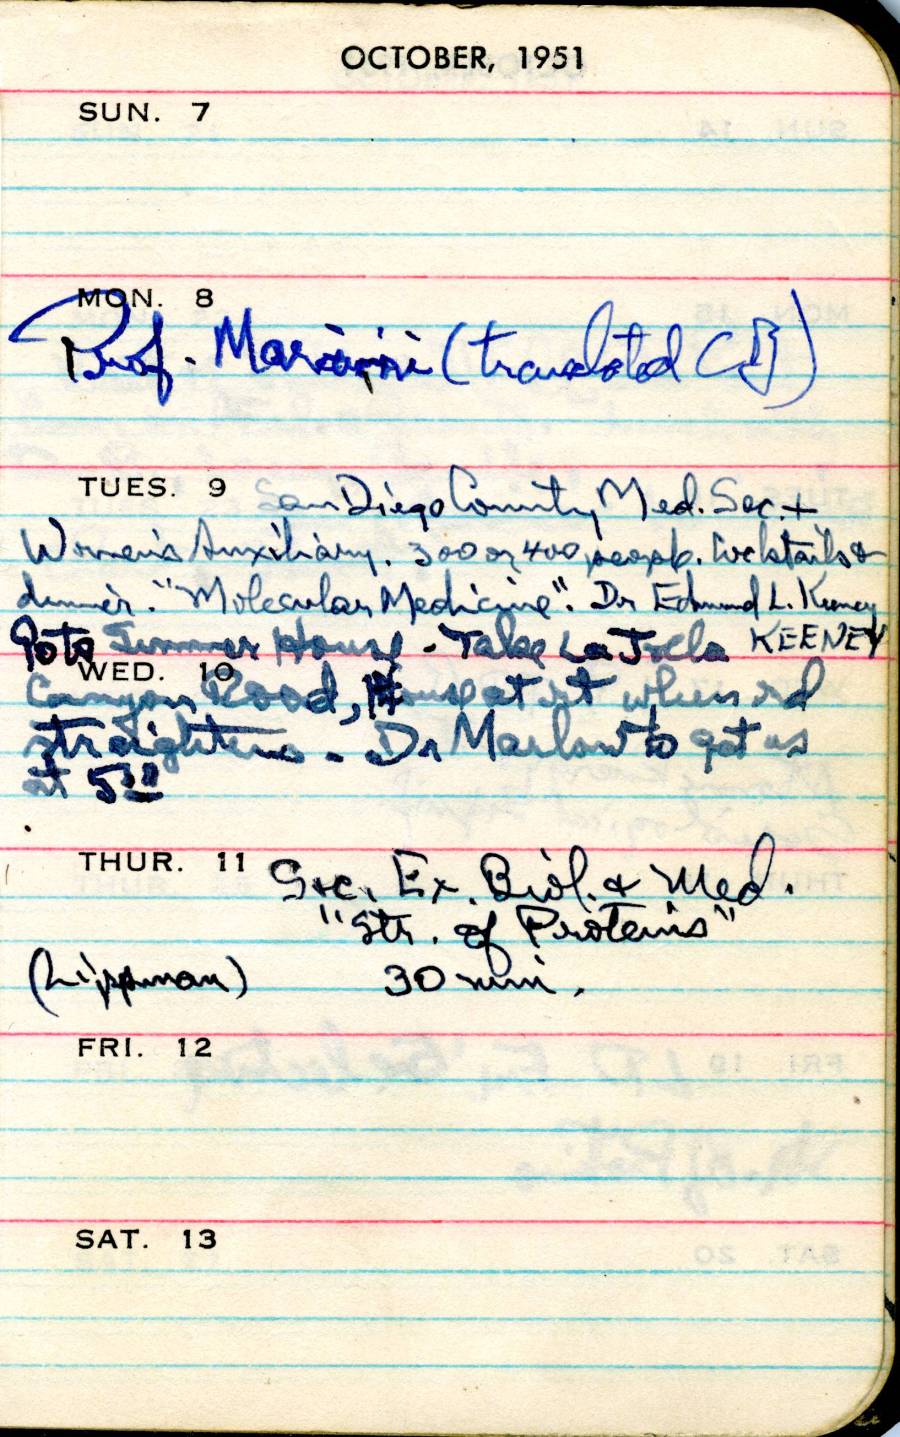 OCTOBER, 1951
SUN. 7
MON. 8
Prof. (translated CB)
TUES. 9 San Diego County Med. Soc. +
Women's Auxiliary. 300 or 400 people. Cocktails &
dinner. "Molecular Medicine". Dr Edmund L. Keeney
Go to Summer House - Take La Jolla KEENEY
WED. 10
Canyon Road, House at rt when rd
straightens. Dr Marlow to get us
at 5³⁰
THUR. 11 Soc. Ex. Biol. & Med.
"Str. of Proteins"
(Lippman) 30 min.
FRI. 12
SAT. 13